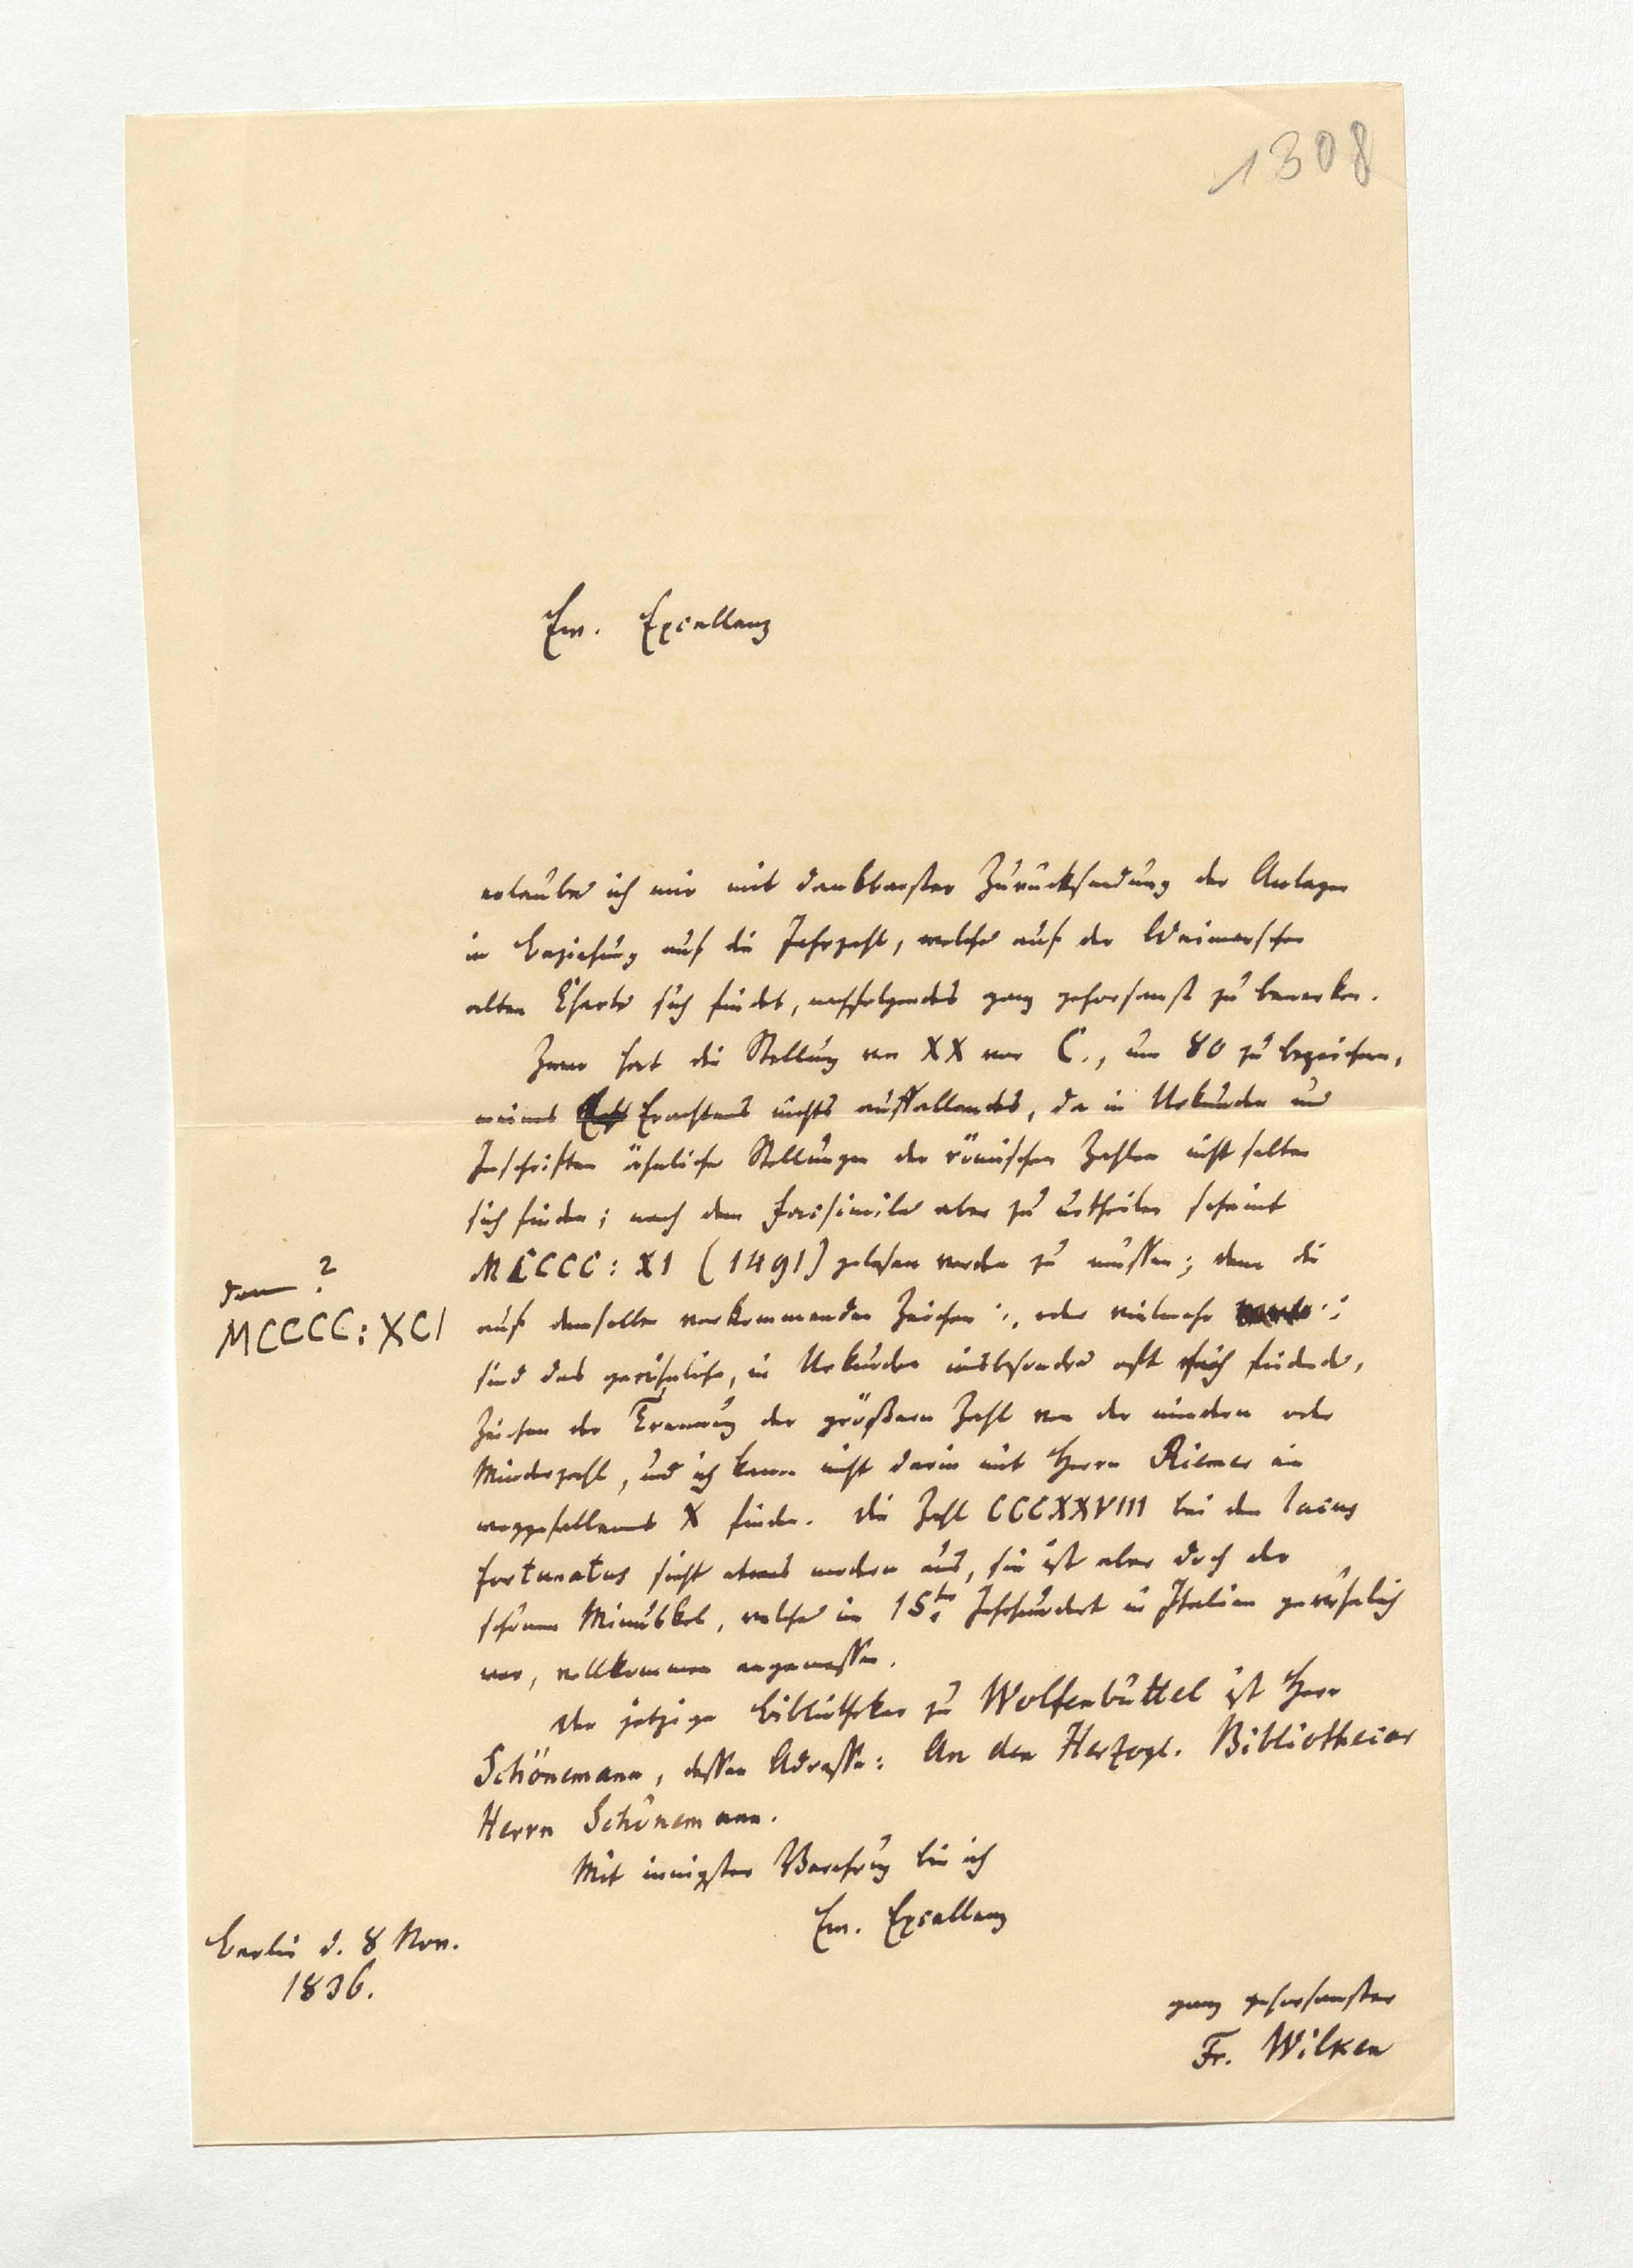 1308
Ew. Excellenz
erlaube ich mir mit dankbarster Zurücksendung der Anlagen
in Beziehung auf die Jahrzahl, welche auf der Weimarschen
alten Charte sich findet, nachfolgendes ganz gehorsamst zu bemerken.
Zwar hat die Stellung von XX vor C., um 80 zu bezeichnen,
meines Erachtens nichts auffallendes, da in Urkunden und
Inschriften ähnliche Stellungen der römischen Zahlen nicht selten
sich finden; nach dem Facsimile aber zu urtheilen scheint
MCCCC: XI (1491) gelesen werden zu müssen; denn die
dom ?
MCCCC: XCI
auf demselben vorkommenden Zeichen :, oder vielmehr :
sind das gewöhnliche, in Urkunden insbesondre oft sich findende,
Zeichen der Trennung der größern Zahl von der mindern oder
Minderzahl, und ich kann nicht darin mit Herrn Riemer ein
weggefallenes X finden. Die Zahl CCCXXVIII bei den lacus
fortunatus sieht etwas modern aus, sie ist aber doch der
schönen Minuskel, welche im 15ten Jahrhundert in Italien gewöhnlich
war, vollkommen angemessen.
Der jetzige Bibliothekar zu Wolfenbüttel ist Herr
Schönemann, dessen Adresse: An den Herzogl. Bibliothecar
Herrn Schönemann.
Mit innigster Verehrung bin ich
Ew. Excellenz
Berlin d. 8 Nov.
1836.
ganz gehorsamster
Fr. Wilken